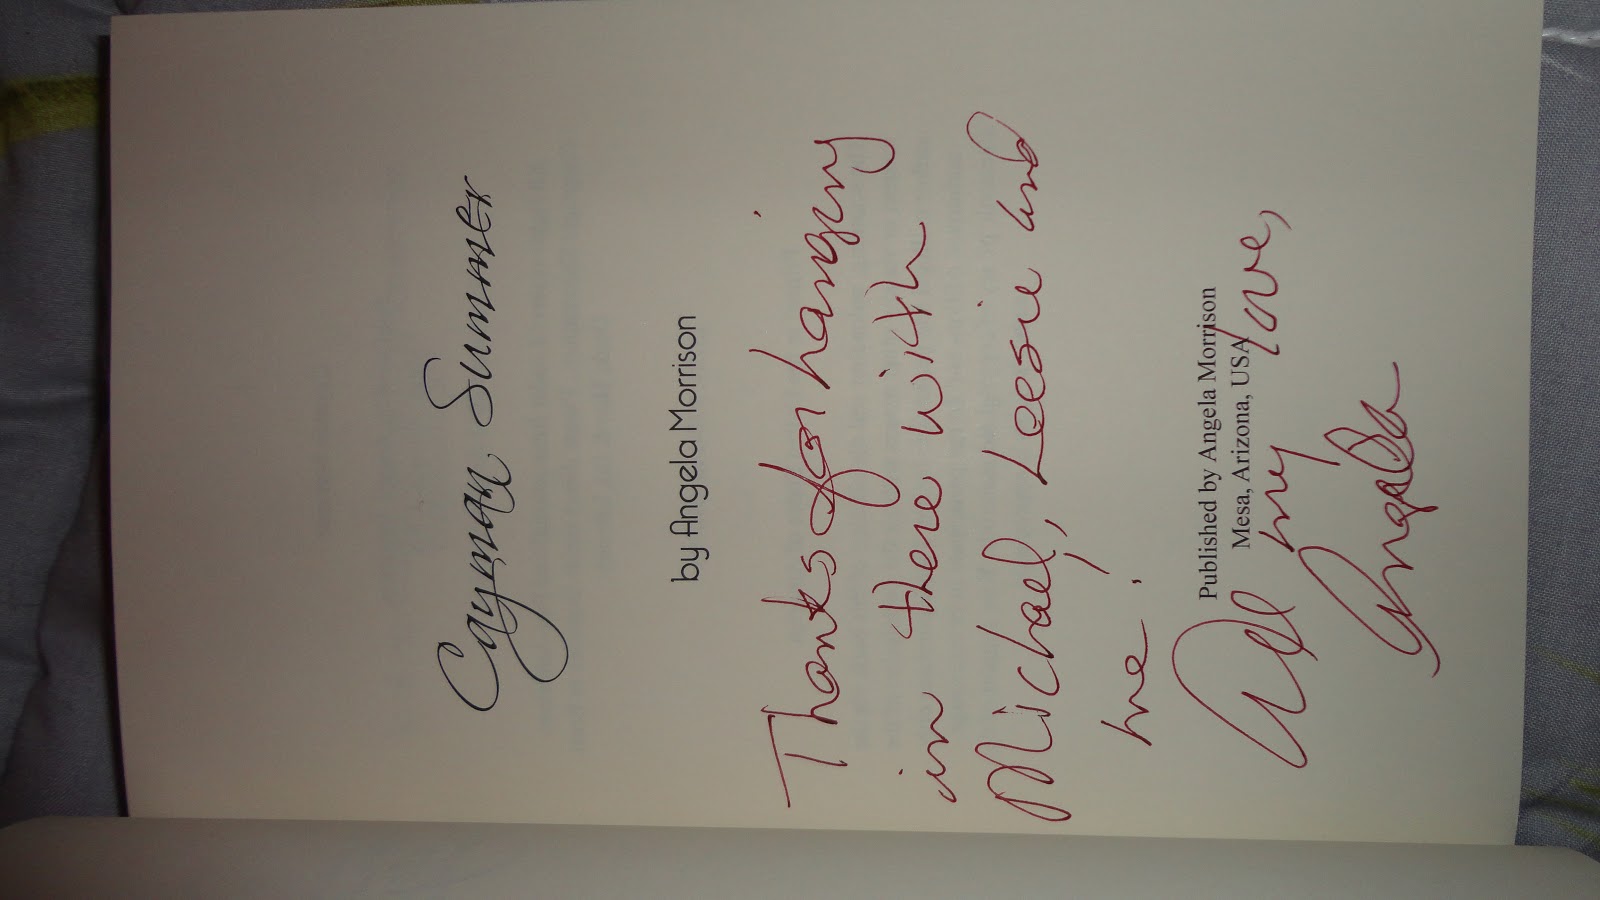 Cayman Summer
by Angela Morrison
Thanks for hanging
in there with
Michael, Leesie and
me!
Published by Angela Morrison
Mesa, Arizona, USA
All my love,
Angela